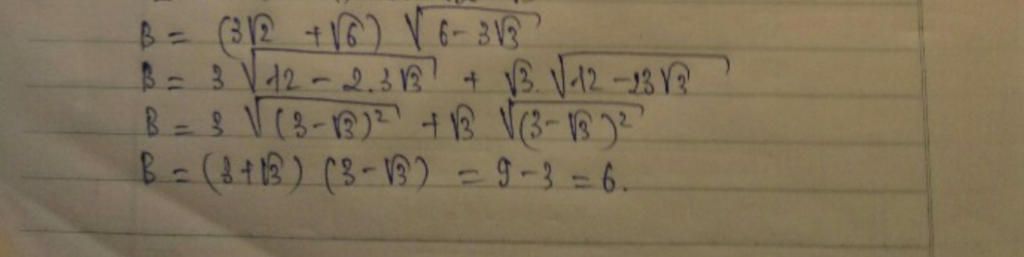 B = (3√2 + √6) √(6 - 3√3)
B = 3 √(12 - 2.3√3) + √3. √(12 - 23√3)
B = 3 √((3 - √3)²) + √3 √((3 - √3)²)
B = (3 + √3) (3 - √3) = 9 - 3 = 6.